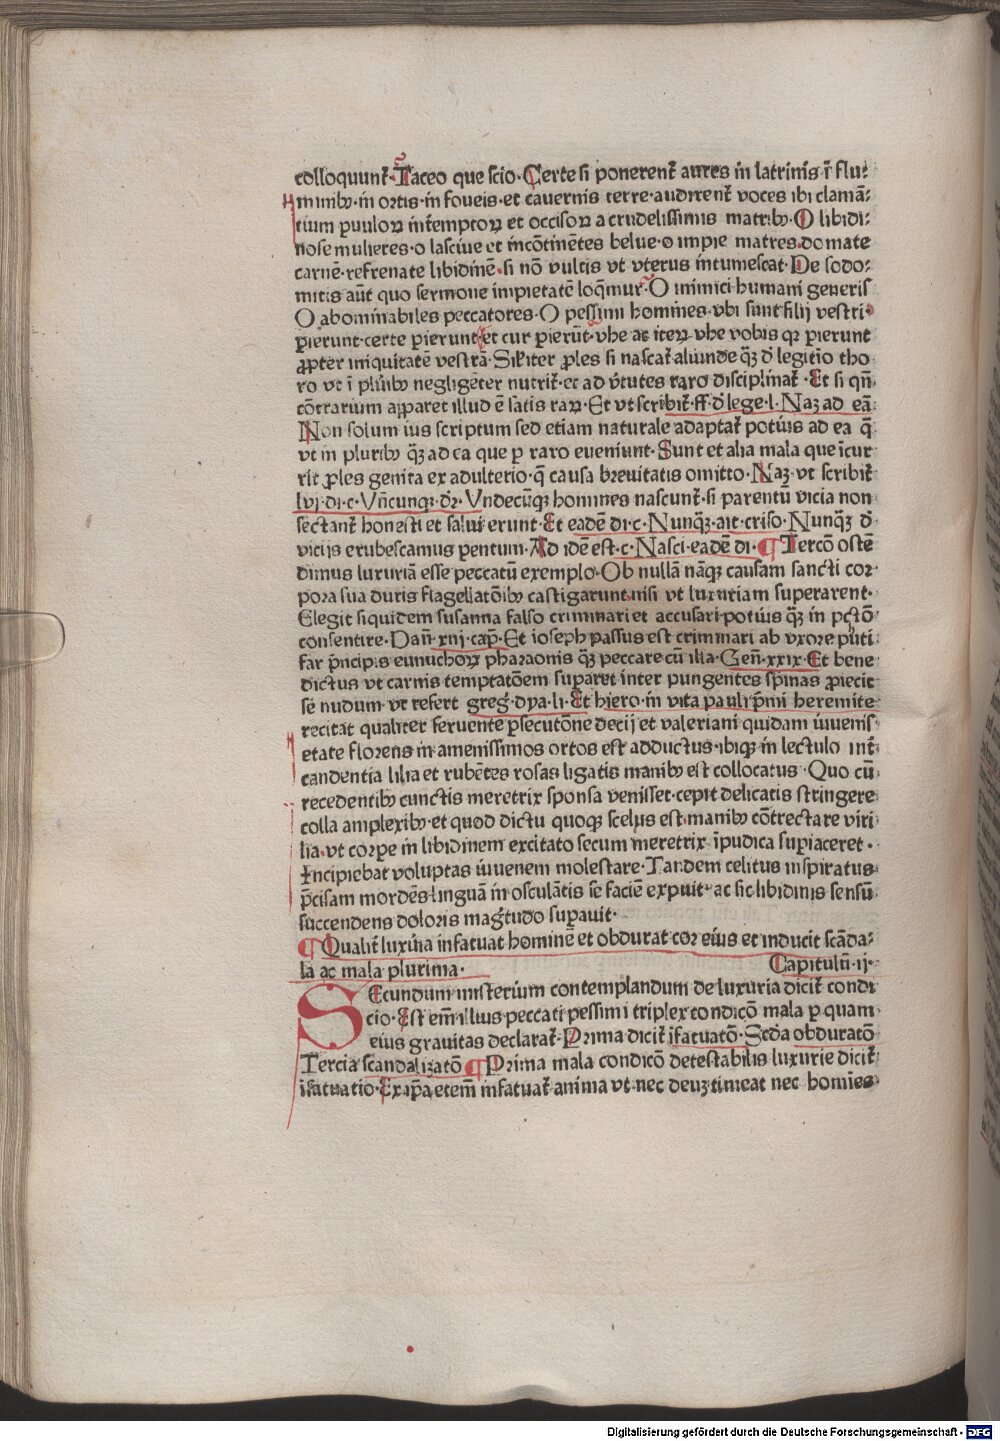 colloquunt᷑. Taceo que scio. Certe si ponerent᷑ aures in latrinis ī flu⸗
minibꝫ. in ortis. in foueis. et cavernis terre. audirent᷑ voces ibi clamā⸗
tium puuloꝝ intemptoꝝ et occisoꝝ a crudelissimis matribꝫ. O libidi⸗
nose mulieres. o lasciue et incōtinētes belue. o impie matres. domate
carnē. refrenate libidinē. si nō vultis vt vterus intumescat. De sodo⸗
mitis aūt quo sermone impietatē loq̄mur. O inimici humani generis
O abominabiles peccatores. O pessimi homines. vbi sunt filij vestri.
ꝑierunt. certe ꝑierunt. et cur ꝑierūt. vhe ac iteꝝ vhe vobis qꝛ ꝑierunt
ꝓpter iniquitatē vestrā. Siłiter ꝓles si nascat᷑ aliunde q̄ꝫ d̄ legitīo tho
ro vt ī plūibꝫ negligēter nutrit᷑. et ad v̄tutes raro disciplinat᷑. Et si qn̄
cōtrarium apparet illud ē satis raꝝ. Et vt scribit᷑. ff. d̄ lege. l. Naꝫ ad eā
Non solum ius scriptum sed etiam naturale adaptat᷑ potius ad ea q̄
vt in pluribꝫ q̄ꝫ ad ea que ꝑ raro eueniunt. Sunt et alia mala que īcur
rit ꝓles genita ex adulterio. q̄ causa breuitatis omitto. Naꝫ. vt scribit᷑
lvj. di. c. Vn̄cunqꝫ. dr̄. Vndecūqꝫ homines nascunt᷑. si parentū vicia non
sectant᷑ honesti et salui erunt. Et eadē di. c. Nunq̄ꝫ. ait criso. Nunq̄ꝫ d̄
vicijs erubescamus pentum. Ad idē est. c. Nasci. eadē di. ¶ Tercō ostē
dimus luxuriā esse peccatū exemplo. Ob nullā nāqꝫ causam sancti cor
pora sua duris flagellatōibꝫ castigarunt. nisi vt luxuriam superarent.
Elegit siquidem susanna falso criminari et accusari potius q̄ꝫ in pctō
consentire. Dan̄. xiij. cap̄. Et ioseph passus est criminari ab vxore puti
far pncipis eunuchoꝝ pharaonis q̄ꝫ peccare cū illa. Gen̄. xxix. Et bene
dictus vt carnis temptatōem supaꝛet inter pungentes spinas ꝓiecit
se nudum. vt refert greg᷑. dya. li. Et hiero. in vita pauli pmi heremite
recitat qualiter feruente ꝑsecutōne decij et valeriani quidam iuuenis
etate florens in amenissimos ortos est adductus. ibiqꝫ in lectulo int᷑
candentia lilia et rubētes rosas ligatis manibꝫ est collocatus. Quo cū
recedentibꝫ cunctis meretrix sponsa venisset. cepit delicatis stringere
colla amplexibꝫ. et quod dictu quoqꝫ scelus est. manibꝫ cōtrectare viri
lia. vt corpe in libidinem excitato secum meretrix īpudica supiaceret.
Incipiebat voluptas iuuenem molestare. Tandem celitus inspiratus
p̄cisam mordēs linguā in osculātis se faciē expuit. ac sic libidinis sensū
succendens doloris magtudo supauit.
¶ Qualit᷑ luxuria infatuat hominē et obdurat cor eius et inducit scāda⸗
la ac mala plurima. Capitulū. ij.
SEcundum misterium contemplandum de luxuria dicit᷑ condi
cio. Est em̄ illius peccati pessimi triplex condicō mala ꝑ quam
eius grauitas declarat᷑. Prima dicit᷑ īfatuatō. Scda obduratō
Tercia scandalizatō ¶ Prima mala condicō detestabilis luxurie dicit᷑
īfatuatio. Ex ipa etem̄ infatuat᷑ anima vt nec deuꝫ timeat nec homies
Digitalisierung gefördert durch die Deutsche Forschungsgemeinschaft - DFG